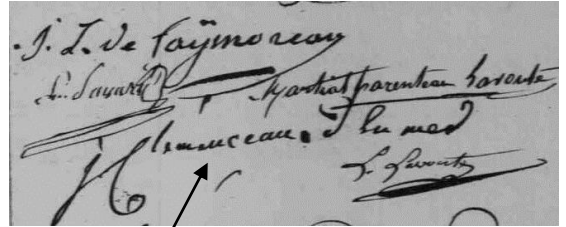 J. L. de Faÿmoreau
L. Savary Martial Parenteau Lavoute
J Clemenceau. d en med
L. Lavoute